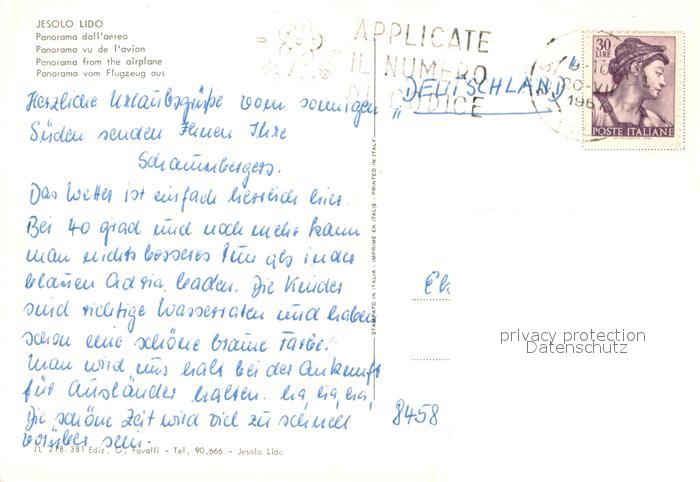 JESOLO LIDO
Panorama dall'aereo
Panorama vu de l'avion
Penorama from the airplane
Panorama vom Flugzeug aus
APPLICATE
IL NUMERO
DI CODICE
30
LIRE
POSTE ITALIANE
Herzliche Urlaubsgrüße vom sonnigen
Süden senden Ihnen Ihre
Schaumbergers.
Das Wetter ist einfach herrlich hier.
Bei 40 grad und noch mehr kann
man nichts besseres tun als in der
blauen Adria baden. Die Kinder
sind richtige Wasserratten und haben
schon eine schöne braune Farbe.
Man wird uns halt bei der Ankunft
für Ausländer halten. ha, ha, ha,
Die schöne Zeit wird viel zu schnell
vorüber sein.
JL 218/381 Ediz. G. Favalli - Tel. 90.666 - Jesolo Lido
STAMPATO IN ITALIA - IMPRIMÉ EN ITALIE - PRINTED IN ITALY
DEUTSCHLAND
8458
privacy protection
Datenschutz